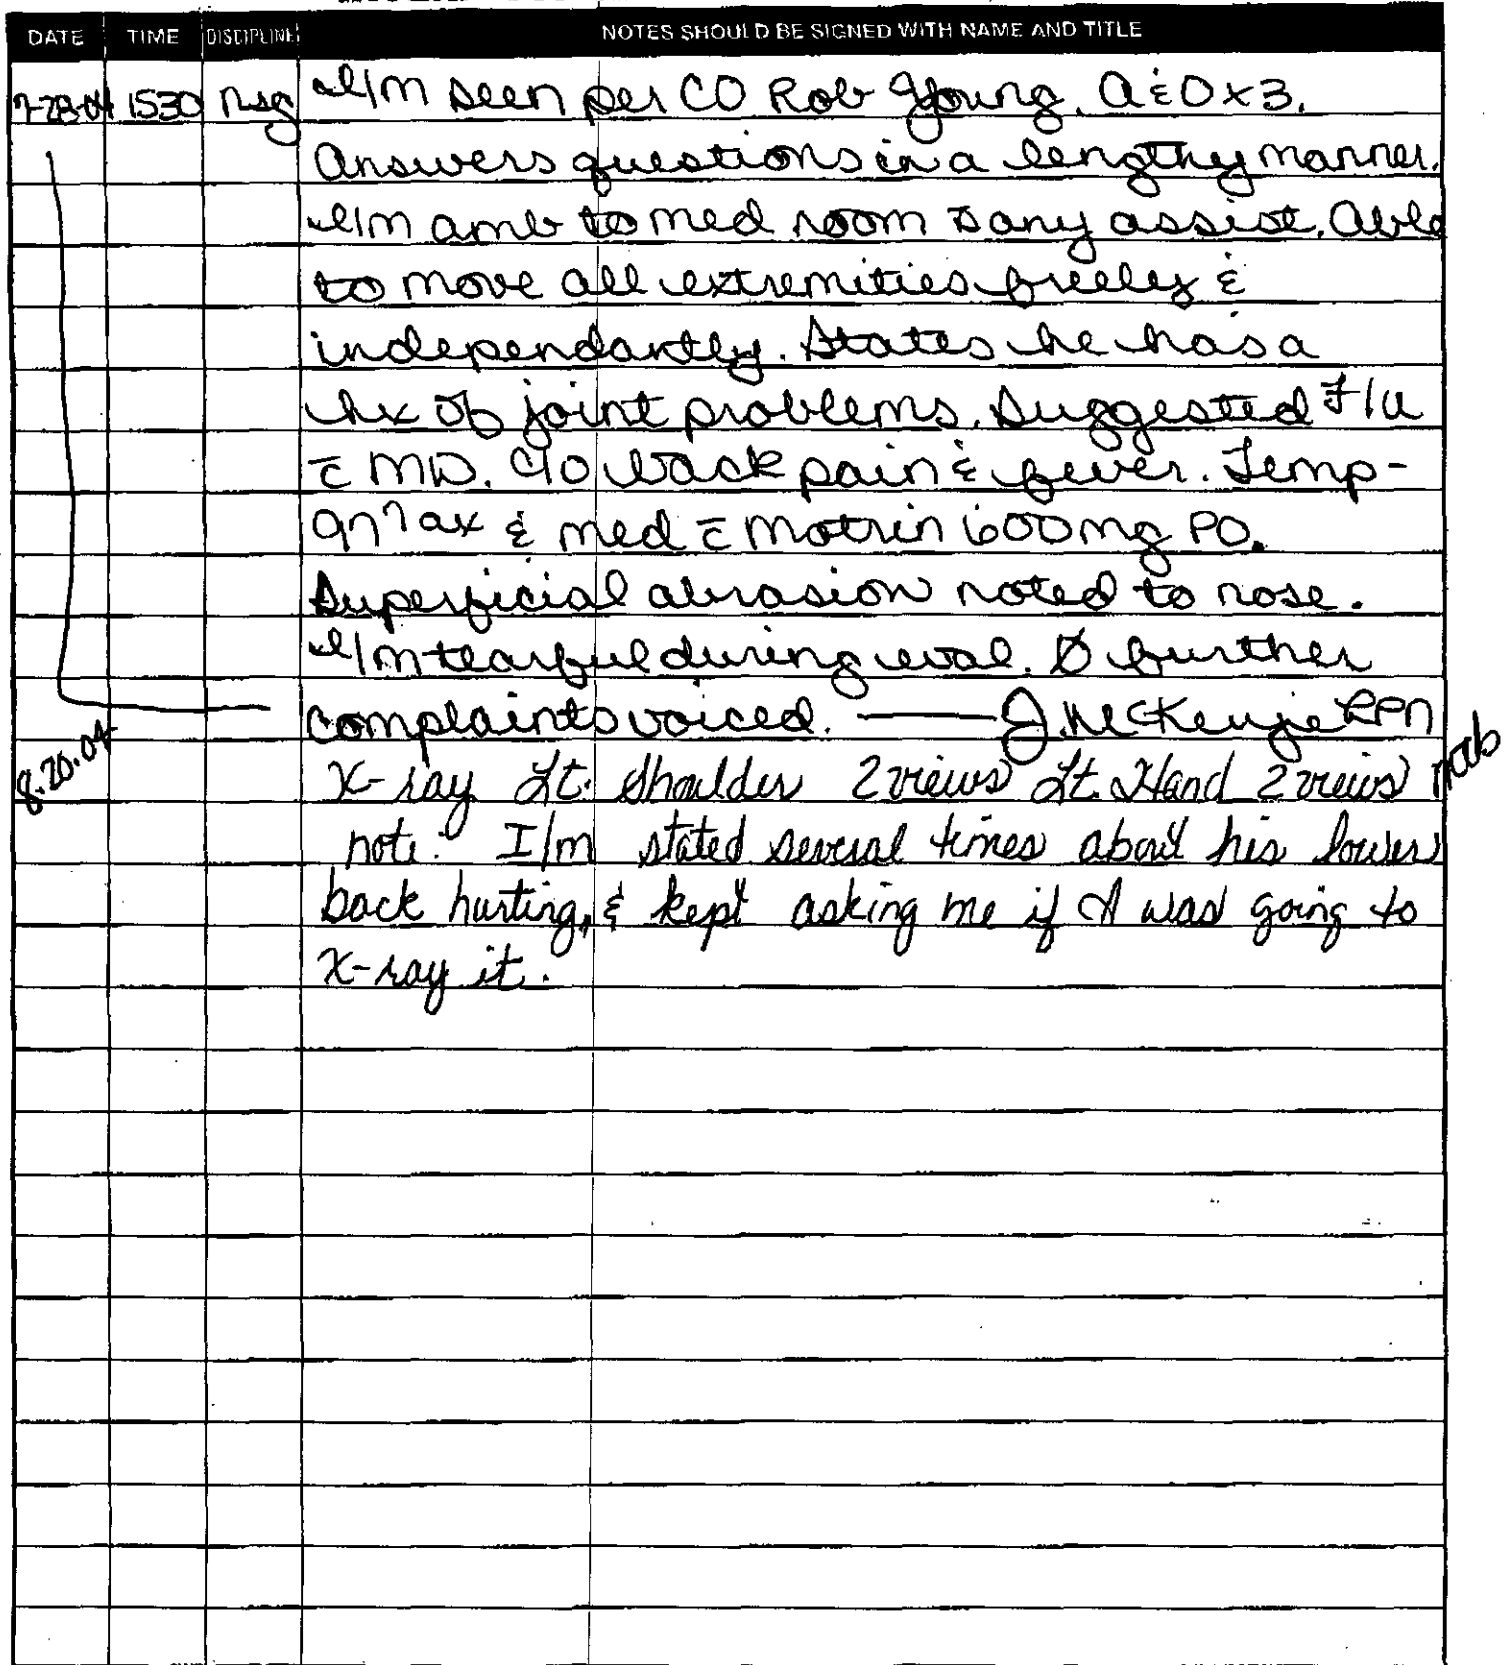 DATE TIME DISCIPLINE NOTES SHOULD BE SIGNED WITH NAME AND TITLE
7-28-04 1530 Nsg I/M seen per CO Rob Young. A & O x 3.
Answers questions in a lengthy manner.
I/M amb to med room s̄ any assist. Able
to move all extremities freely &
independantly. States he has a
hx of joint problems. Suggested F/u
c̄ MD. C/o back pain & fever. Temp-
97⁷ ax & med c̄ Motrin 600mg PO.
Superficial abrasion noted to nose.
I/M tearful during eval. Ø further
complaints voiced. — J. McKenzie LPN
8-20-04 X-ray Lt. Shoulder 2 views Lt. Hand 2 views
note: I/m stated several times about his lower
back hurting, & kept asking me if I was going to
X-ray it.